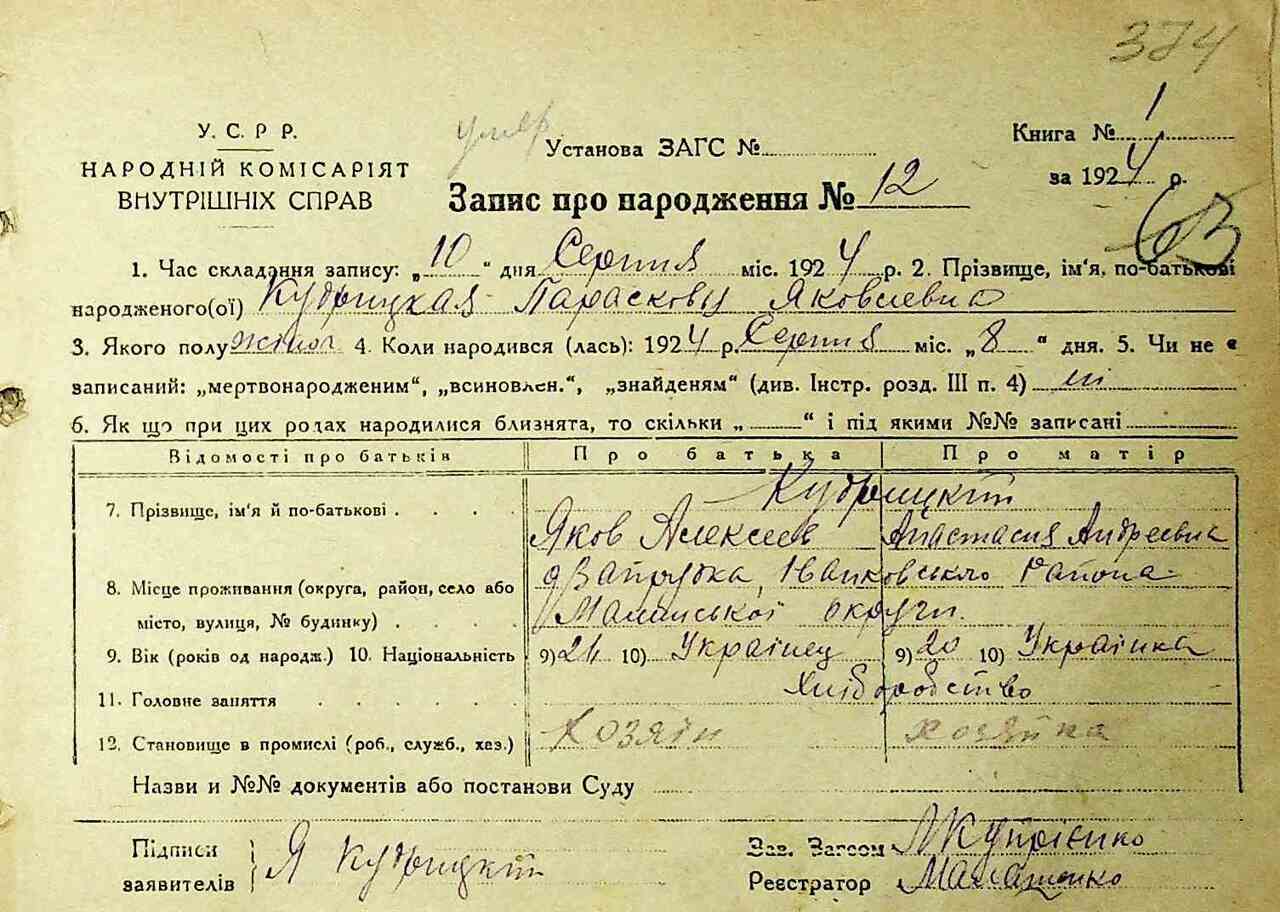 374
У. С. Р Р.
НАРОДНІЙ КОМІСАРІЯТ
ВНУТРІШНІХ СПРАВ
умер.
Установа ЗАГС №
Запис про народження № 12
Книга № 1
за 1924 р.
63
1. Час складання запису: „10“ дня Серпня міс. 1924 р. 2. Прізвище, ім'я, по-батькові
народженого(ої) Кудрицкая Парасковія Яковлевна
3. Якого полу жіноч 4. Коли народився (лась): 1924 р. Серпня міс. „8“ дня. 5. Чи не є
записаний: „мертвонародженим“, „всиновлен.“, „знайденям“ (див. Інстр. розд. III п. 4) ні
6. Як що при цих родах народилися близнята, то скільки „ “ і під якими №№ записані
Відомості про батьків Про батька Про матір
Кудрицкій
7. Прізвище, ім'я й по-батькові . . . . Яков Алексеев Анастасия Андреевна
8. Місце проживання (округа, район, село або Запрудка, Іванковського Района
місто, вулиця, № будинку) . . . . Малинської округи.
9. Вік (років од народж.) 10. Національність 9) 21 10) Українец 9) 20 10) Українка
11. Головне заняття . . . . . . Хліборобство
12. Становище в промислі (роб., служб., хаз.) Хозяін хозяйка
Назви и №№ документів або постанови Суду
Підписи
заявителів Я Кудрицкій
Зав. Загсом Купрієнко
Реєстратор Малашенко